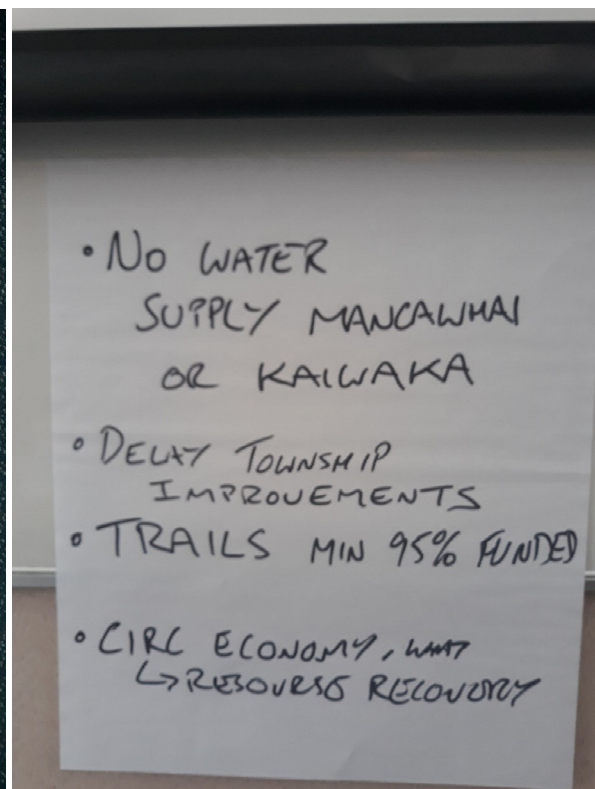 • No WATER
SUPPLY MANGAWHAI
OR KAIWAKA
• DELAY TOWNSHIP
IMPROVEMENTS
• TRAILS MIN 95% FUNDED
• CIRC ECONOMY, WHAT
↳ RESOURSE RECOVORY